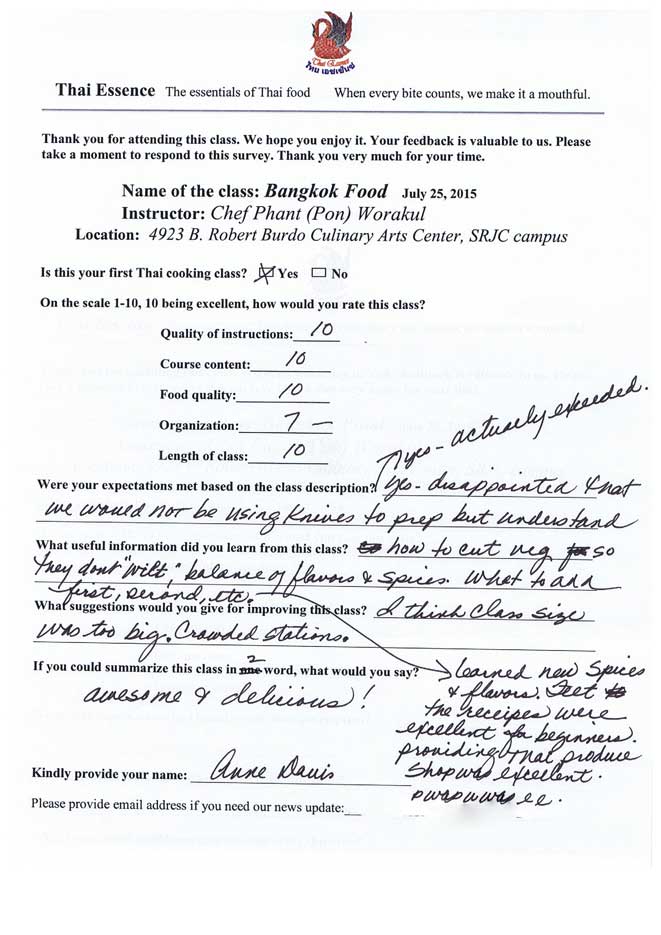 Thai Essence
ไทย เอสเซ้นซ์
Thai Essence The essentials of Thai food When every bite counts, we make it a mouthful.
Thank you for attending this class. We hope you enjoy it. Your feedback is valuable to us. Please
take a moment to respond to this survey. Thank you very much for your time.
Name of the class: Bangkok Food July 25, 2015
Instructor: Chef Phant (Pon) Worakul
Location: 4923 B. Robert Burdo Culinary Arts Center, SRJC campus
Is this your first Thai cooking class? Yes No
On the scale 1-10, 10 being excellent, how would you rate this class?
Quality of instructions: 10
Course content: 10
Food quality: 10
Organization: 7 —
Length of class: 10
yes - actually exceeded.
Were your expectations met based on the class description? Yes - disappointed that
we would not be using knives to prep but understand
What useful information did you learn from this class? how to cut veg so
they dont "wilt," balance of flavors & spices. What to add
first, second, etc.
What suggestions would you give for improving this class? I think class size
was too big. Crowded stations.
If you could summarize this class in one 2 word, what would you say?
awesome & delicious!
learned new spices
& flavors. Feet
the receipes were
excellent for beginners.
providing that produce
shop was excellent.
Kindly provide your name: Anne Davis
Please provide email address if you need our news update: